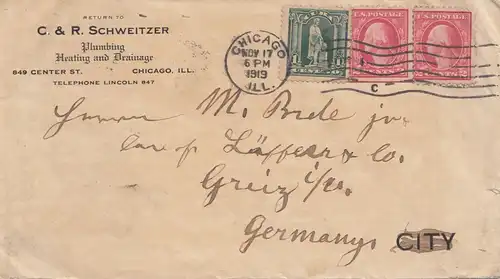 RETURN TO
C. & R. SCHWEITZER
Plumbing
Heating and Drainage
849 CENTER ST. CHICAGO, ILL.
TELEPHONE LINCOLN 847
CHICAGO
NOV 17
6 PM
1919
ILL.
C
U.S. POSTAGE
U.S. POSTAGE
Herrn M. Bude jr.
Care of Löffler & Co.
Greiz i/
Germany.
CITY